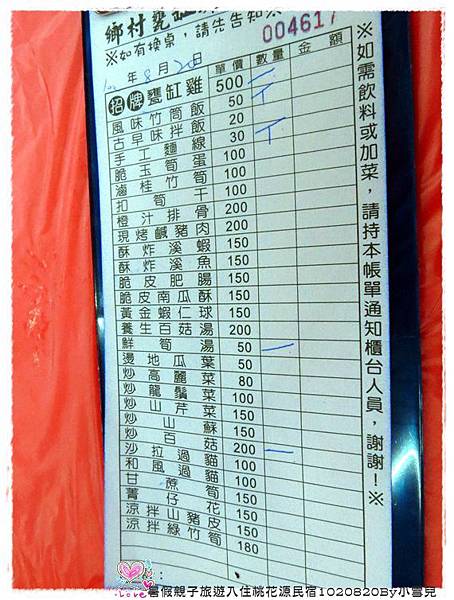 鄉村甕缸
※如有換桌,請先告知※
004617
年8月20日
單價 數量 金額
招牌甕缸雞 500 一
風味竹筒飯 50
古早味拌飯 20
手工麵線 30
脆玉筍蛋 100
滷桂竹筍 100
扣筍干 100
橙汁排骨 200
現烤鹹豬肉 200
酥炸溪蝦 150
酥炸溪魚 150
脆皮肥腸 150
脆皮南瓜酥 150
黃金蝦仁球 150
養生百菇湯 200
鮮筍湯 50 一
燙地瓜葉 50
炒高麗菜 80
炒龍鬚菜 100
炒山芹菜 150
炒山蘇 150
炒百菇 200 一
沙拉過貓 100
和風過貓 100
甘蔗筍 150
菁仔花 150
涼拌山豬皮 150
涼拌綠竹筍 180
※如需飲料或加菜,請持本帳單通知櫃台人員,謝謝!※
Love 暑假親子旅遊入住桃花源民宿1020820By小雪兒